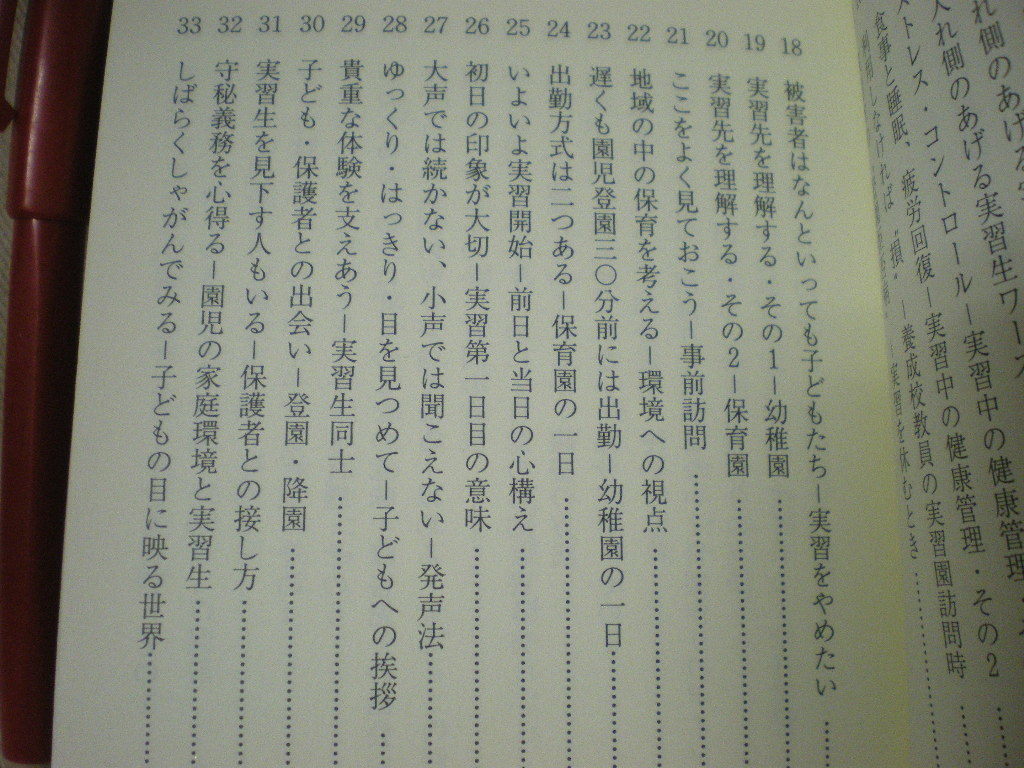 れ側のあげる
入れ側のあげる実習生ワース
ストレス・コントロール―実習中の健康管理
食事と睡眠、疲労回復―実習中の健康管理・その2
―養成校教員の実習園訪問時
18 被害者はなんといっても子どもたち―実習をやめたい
19 実習先を理解する・その1―幼稚園
20 実習先を理解する・その2―保育園
21 ここをよく見ておこう―事前訪問
22 地域の中の保育を考える―環境への視点
23 遅くも園児登園三〇分前には出勤―幼稚園の一日
24 出勤方式は二つある―保育園の一日
25 いよいよ実習開始―前日と当日の心構え
26 初日の印象が大切―実習第一日目の意味
27 大声では続かない、小声では聞こえない―発声法
28 ゆっくり・はっきり・目を見つめて―子どもへの挨拶
29 貴重な体験を支えあう―実習生同士
30 子ども・保護者との出会い―登園・降園
31 実習生を見下す人もいる―保護者との接し方
32 守秘義務を心得る―園児の家庭環境と実習生
33 しばらくしゃがんでみる―子どもの目に映る世界